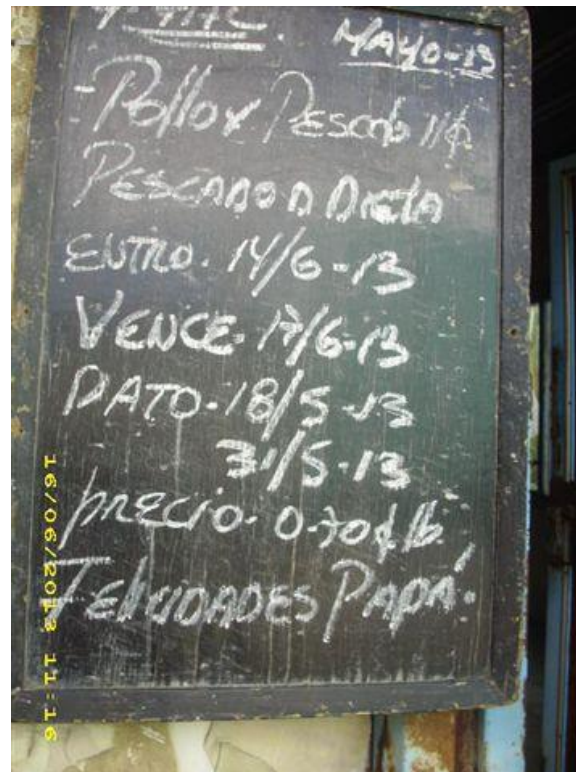 MAYO-13
-Pollo x Pescado 11 ₵
PESCADO D Dieta
ENTRO. 14/6-13
VENCE. 17/6-13
DATO. 18/5-13
31/5-13
precio. 0.70 ₵ lb.
Felicidades Papá.
16/06/2013 11:16